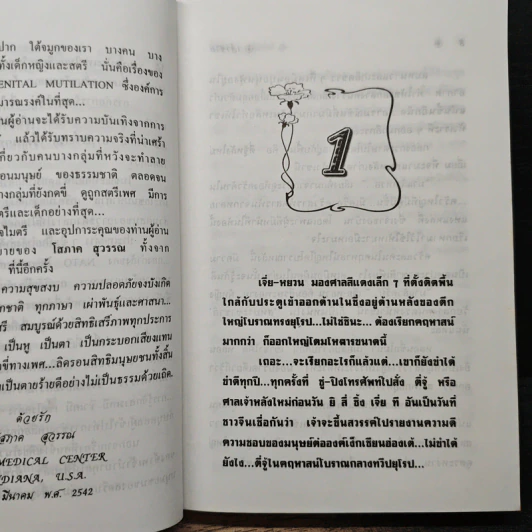 ปาก ใต้จมูกของเรา บางคน บาง
ทั้งเด็กหญิงและสตรี นั่นคือเรื่องของ
ENITAL MUTILATION ซึ่งองค์การ
มารณรงค์ในที่สุด...
นผู้อ่านจะได้รับความบันเทิงจากการ
แล้วได้รับทราบความจริงที่น่าเศร้า
กี่ยวกับคนบางกลุ่มที่หวังจะทำลาย
รอนมนุษย์ ของธรรมชาติ ตลอดจน
างกลุ่มที่ยังกดขี่ ดูถูกสตรีเพศ มีการ
ตรีและเด็กอย่างที่สุด...
จไมตรี และอุปการะคุณของท่านผู้อ่าน
ยายของ โสภาค สุวรรณ ทั้งจาก
ที่นี้อีกครั้ง
ความสุขสงบ ความปลอดภัยจงบังเกิด
กชาติ ทุกภาษา เผ่าพันธุ์และศาสนา...
รี สมบูรณ์ด้วยสิทธิเสรีภาพทุกประการ
เป็นหู เป็นตา เป็นกระบอกเสียงแทน
ขี่ทางเพศ...ลิดรอนสิทธิมนุษยชนทั้งสิ้น
เป็นตายร้ายดีอย่างไม่เป็นธรรมด้วยเถิด.
ด้วยรัก
สภาค สุวรรณ
MEDICAL CENTER
DIANA, U.S.A.
มีนาคม พ.ศ. 2542
1
เจี่ย-หยวน มองศาลสีแดงเล็ก ๆ ที่ตั้งติดพื้น
ใกล้กับประตูเข้าออกด้านในซึ่งอยู่ด้านหลังของตึก
ใหญ่โบราณทรงยุโรป...ไม่ใช่ซินะ... ต้องเรียกคฤหาสน์
มากกว่า ก็ออกใหญ่โตมโหฬารขนาดนี้
เถอะ...จะเรียกอะไรก็แล้วแต่...เขาก็ยังขำได้
ขำดีทุกปี...ทุกครั้งที่ ซู่-ปิงโทรศัพท์ไปสั่ง ตี่จู้ หรือ
ศาลเจ้าหลังใหม่ก่อนวัน ยิ สี่ ซิ้ง เจี่ย ที อันเป็นวันที่
ชาวจีนเชื่อกันว่า เจ้าจะขึ้นสวรรค์ไปรายงานความดี
ความชอบของมนุษย์ต่อองค์เง็กเซียนฮ่องเต้...ไม่ขำได้
ยังไง...ตี่จู้ในคฤหาสน์โบราณกลางทวีปยุโรป...